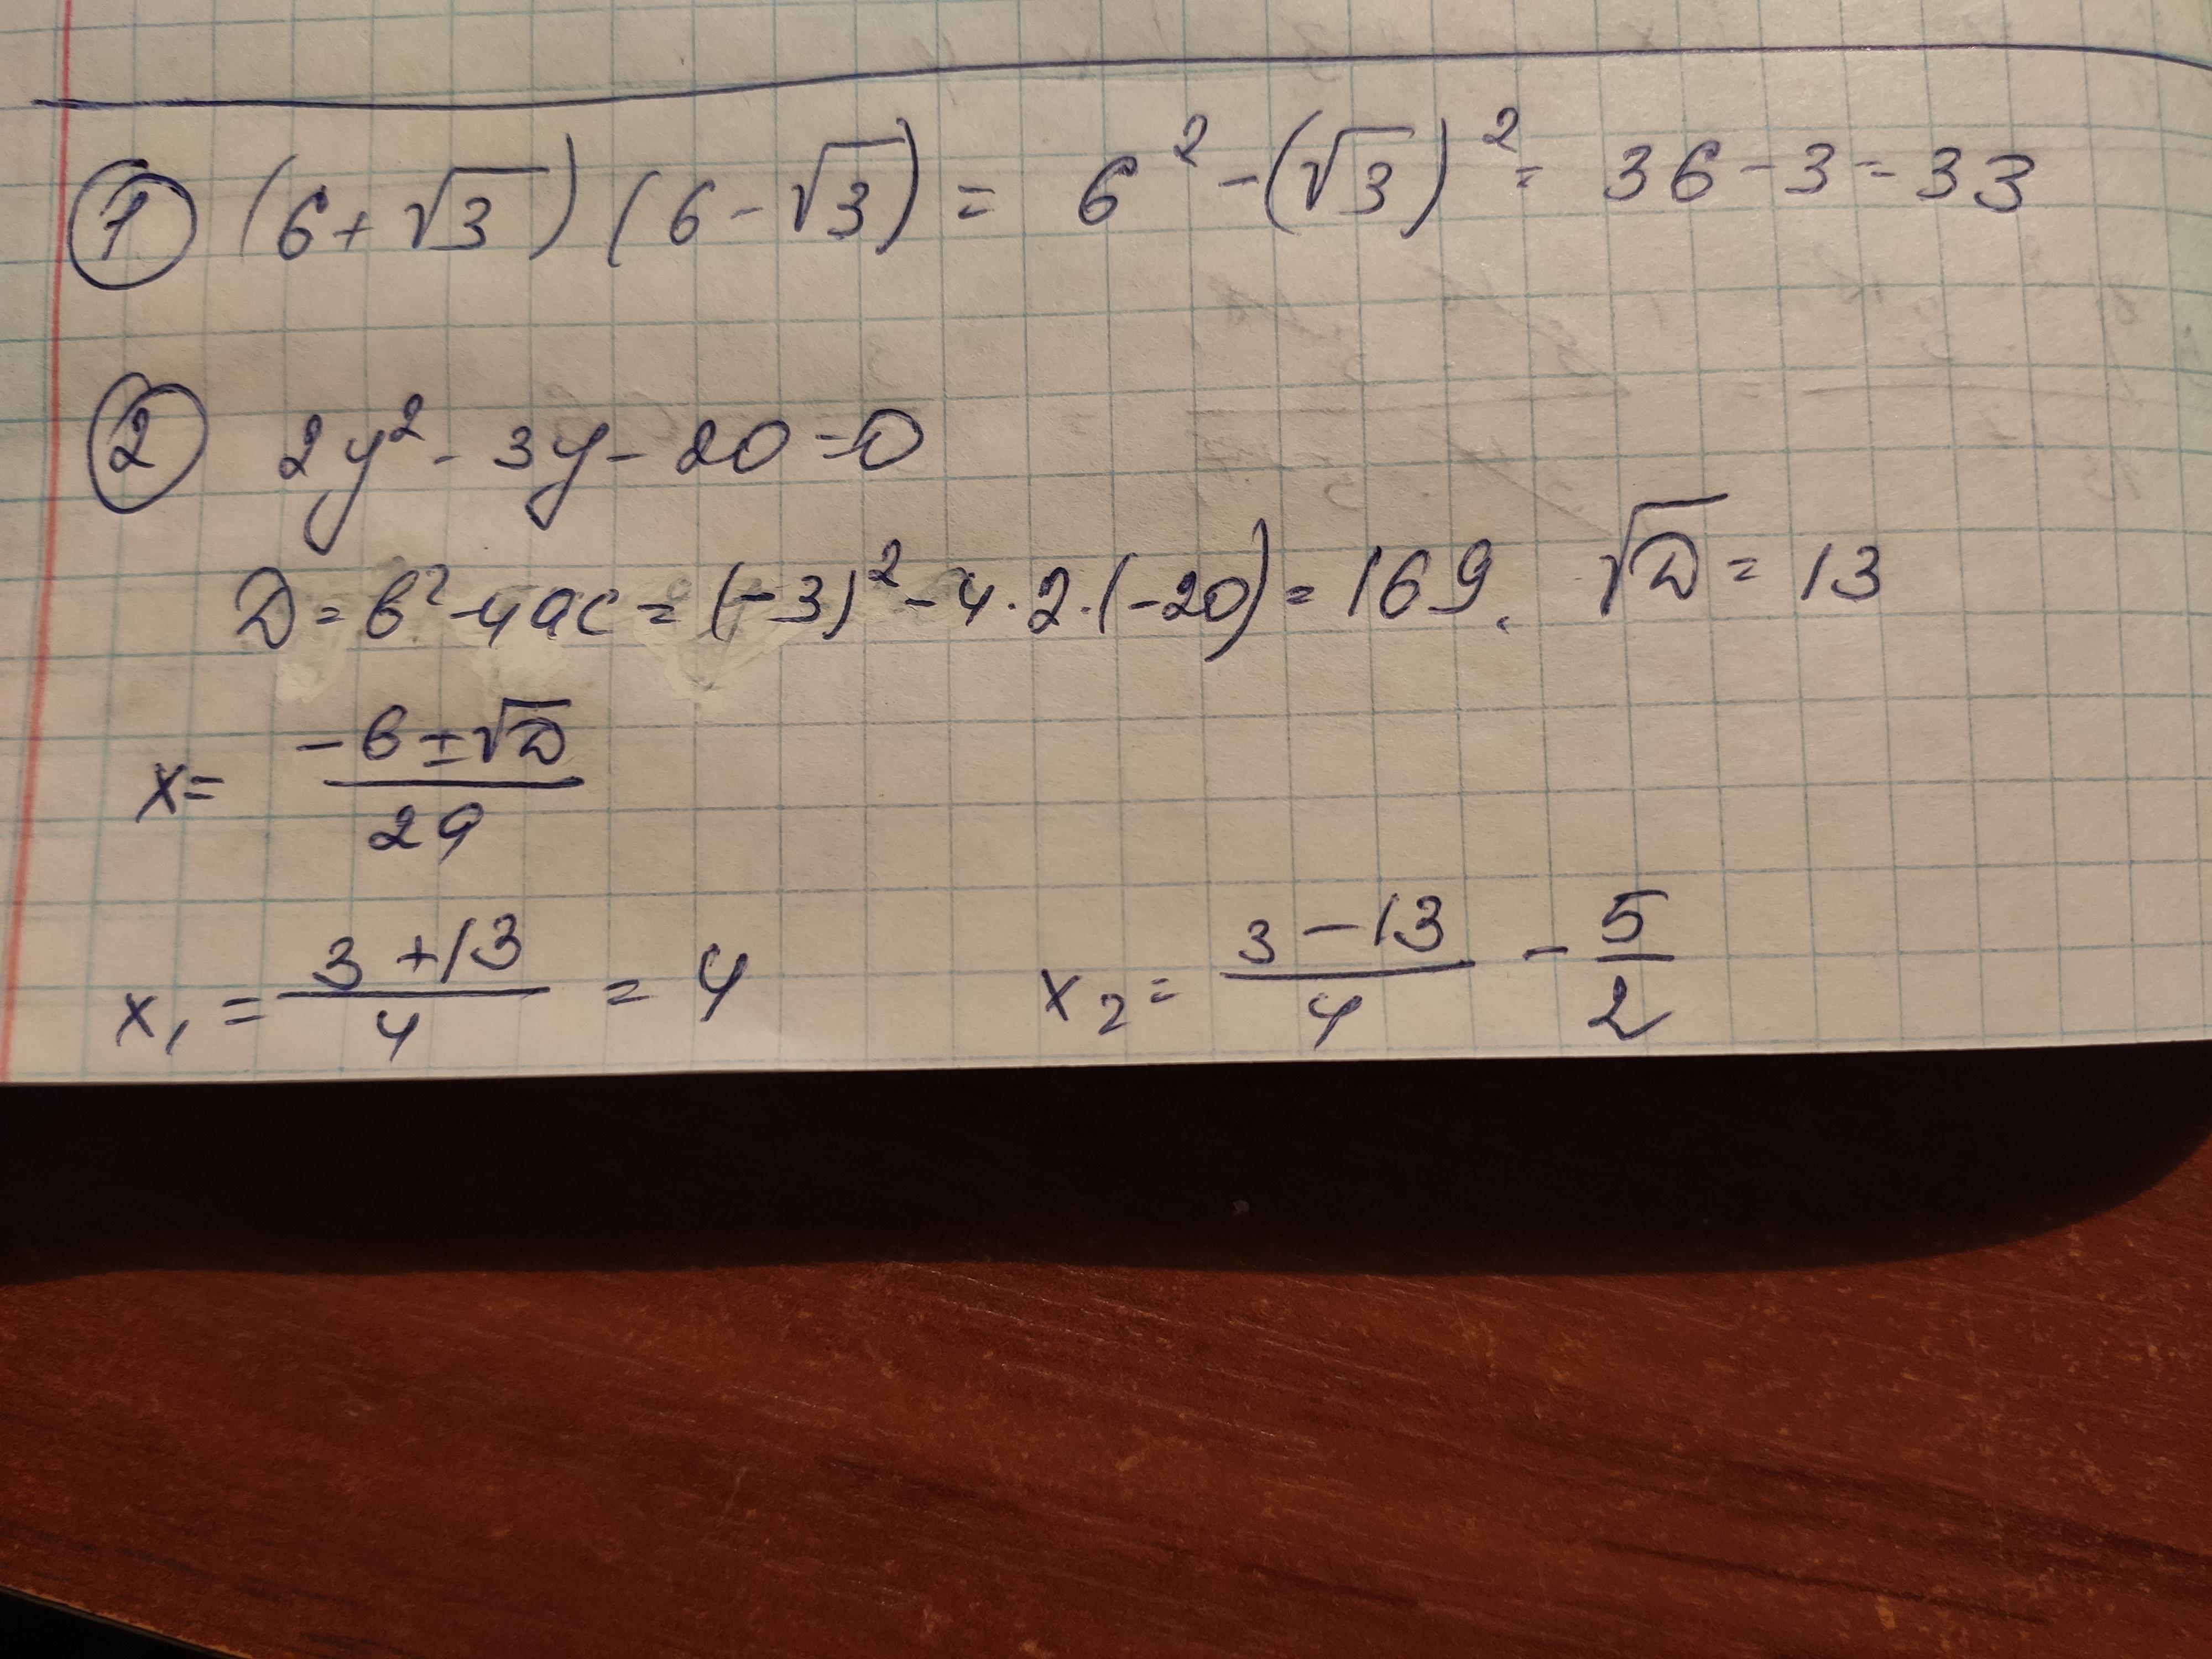 ① (6+√3)(6-√3) = 6²-(√3)² = 36-3=33
② 2y²-3y-20=0
D=b²-4ac=(-3)²-4·2·(-20)=169. √D=13
x= (-b±√D)/2a
x₁ = (3+13)/4 = 4 x₂= (3-13)/4 - 5/2